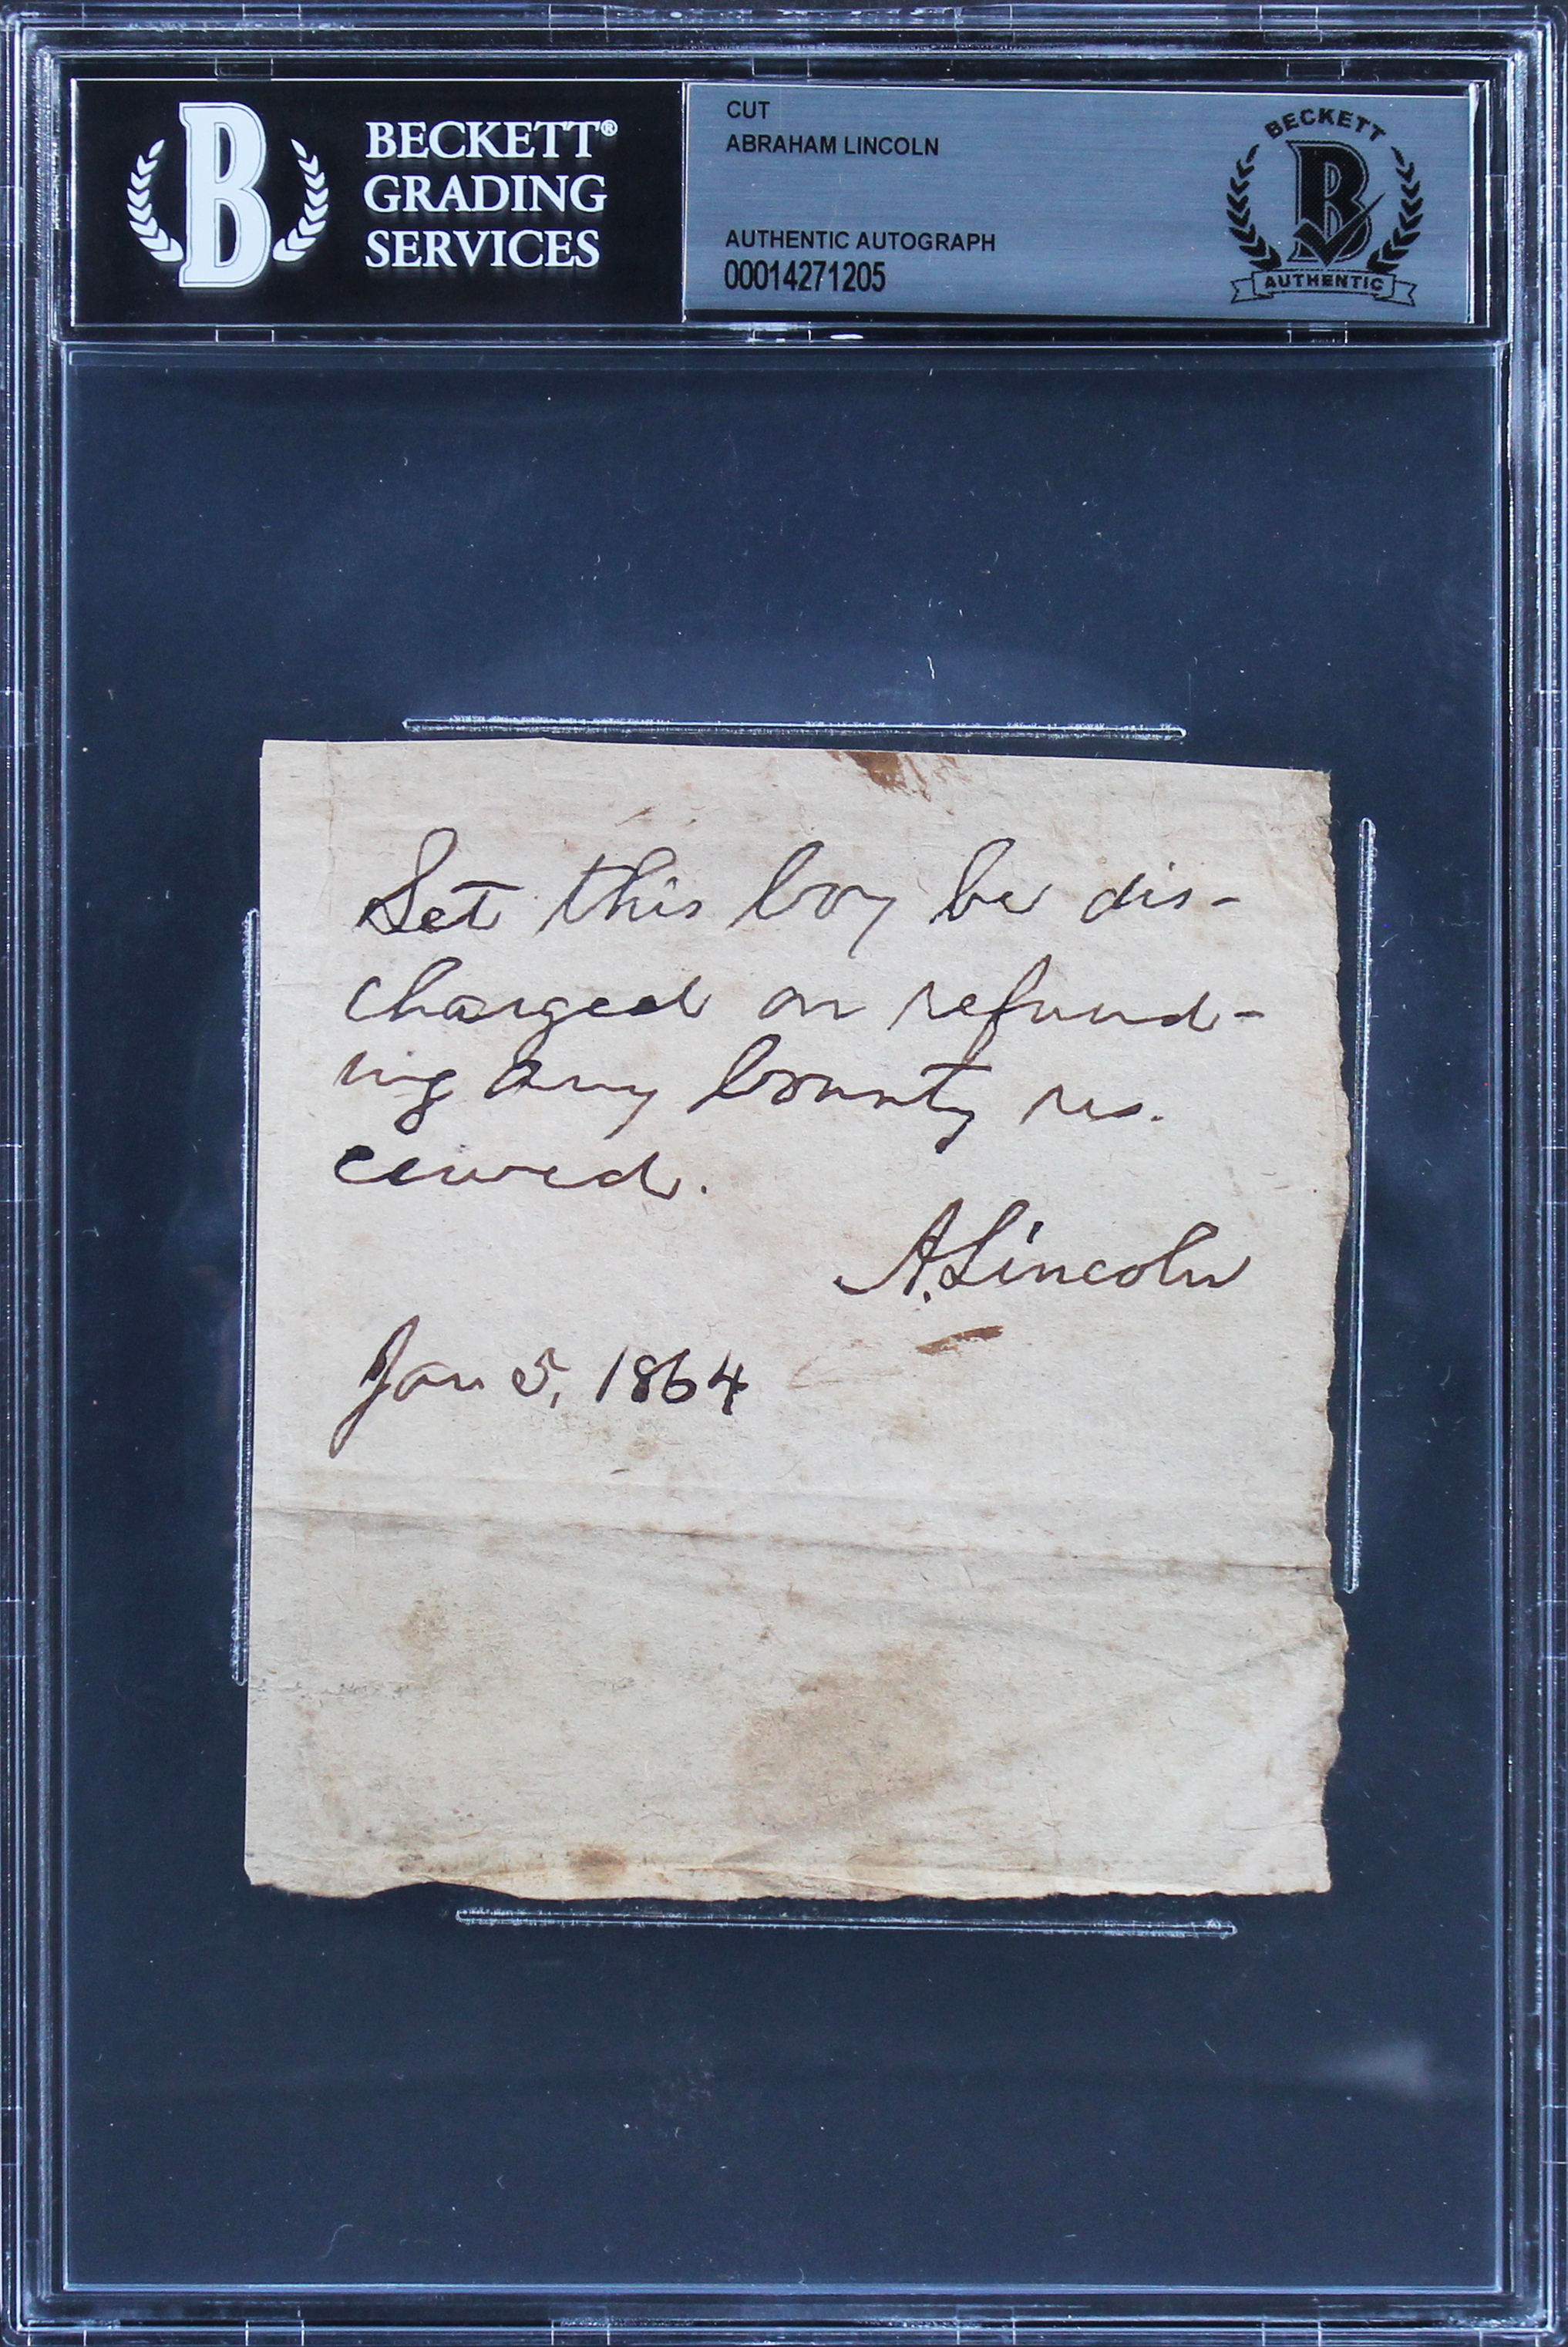 BECKETT®
GRADING
SERVICES
CUT
ABRAHAM LINCOLN
AUTHENTIC AUTOGRAPH
00014271205
BECKETT
B
AUTHENTIC
Let this boy be dis-
charged on refund-
ing any bounty re-
ceived.
A. Lincoln
Jan 5, 1864